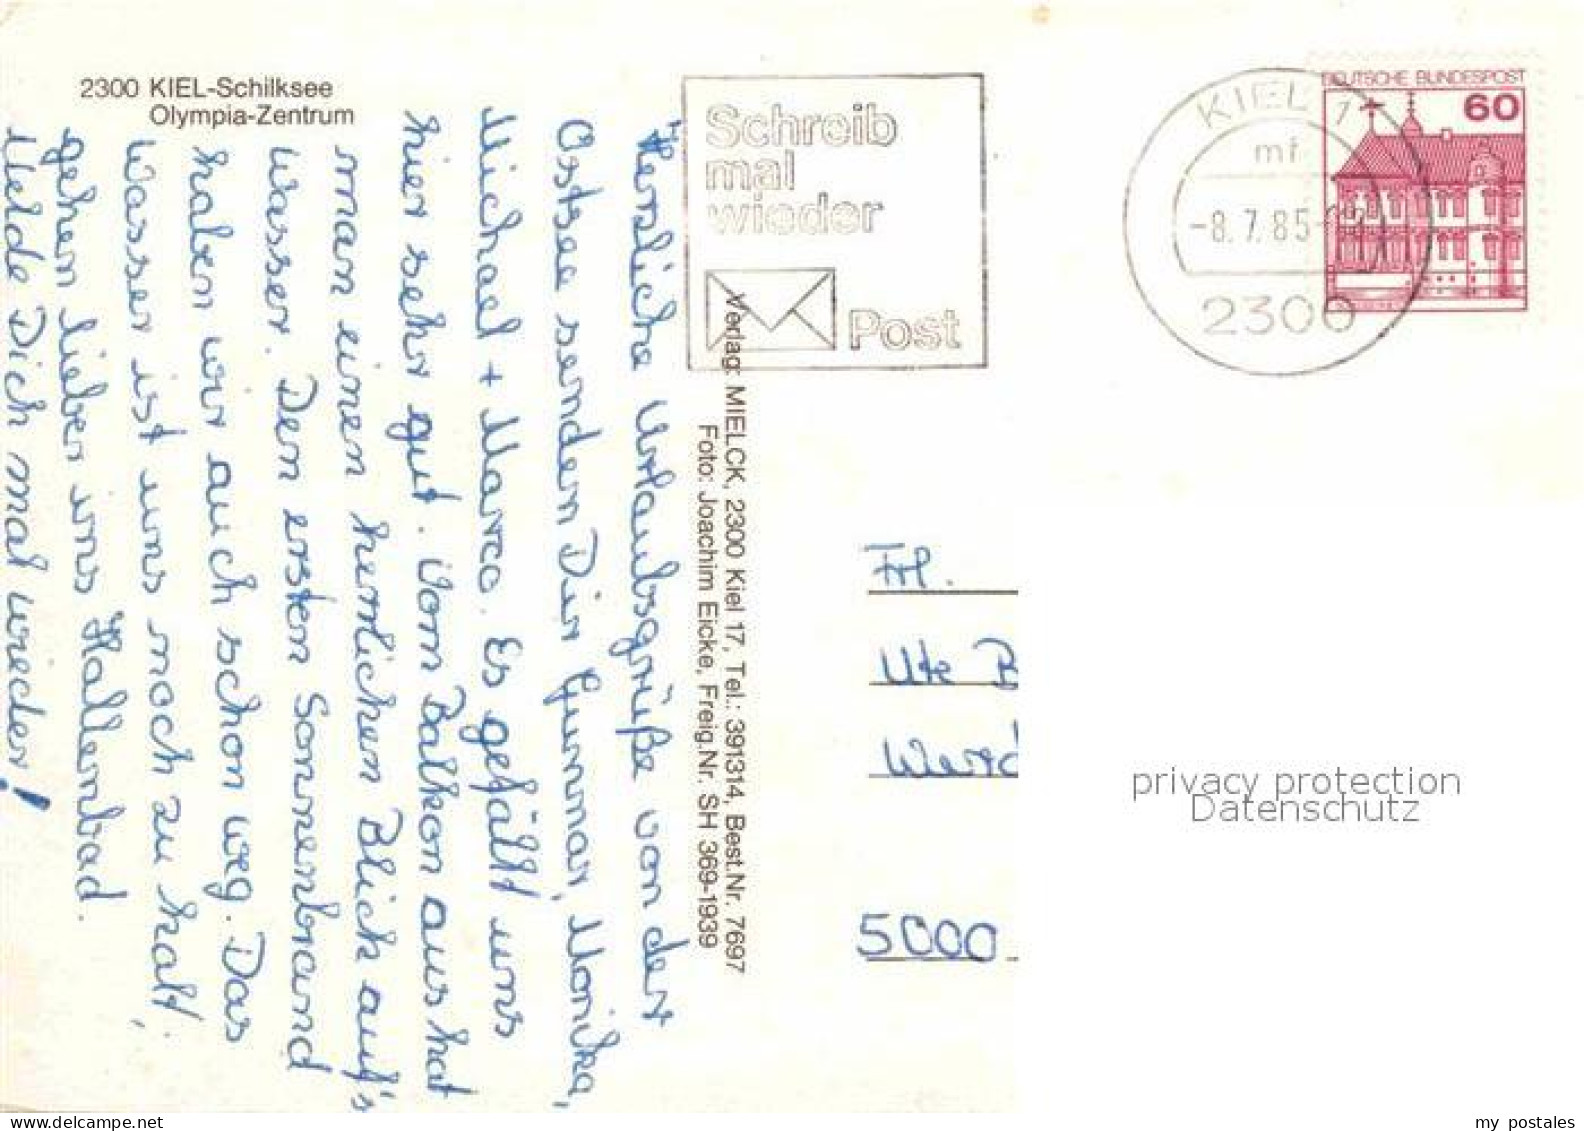 2300 KIEL-Schilksee
Olympia-Zentrum
Schreib
mal
wieder
Post
KIEL 1
mf
-8.7.85-
2300
DEUTSCHE BUNDESPOST
60
Herzliche Urlaubsgrüße von der
Ostsee senden Dir Gunnar, Monika,
Michael + Marco. Es gefällt uns
hier sehr gut. Vom Balkon aus hat
man einen herrlichen Blick auf's
Wasser. Den ersten Sonnenbrand
haben wir auch schon weg. Das
Wasser ist uns noch zu kalt,
gehen lieber ins Hallenbad.
Melde Dich mal wieder!
Verlag: MIELCK, 2300 Kiel 17, Tel.: 391314, Best.Nr. 7697
Foto: Joachim Eicke, Freig.Nr. SH 369-1939
Frl.
Ute
5000
privacy protection
Datenschutz
my postales